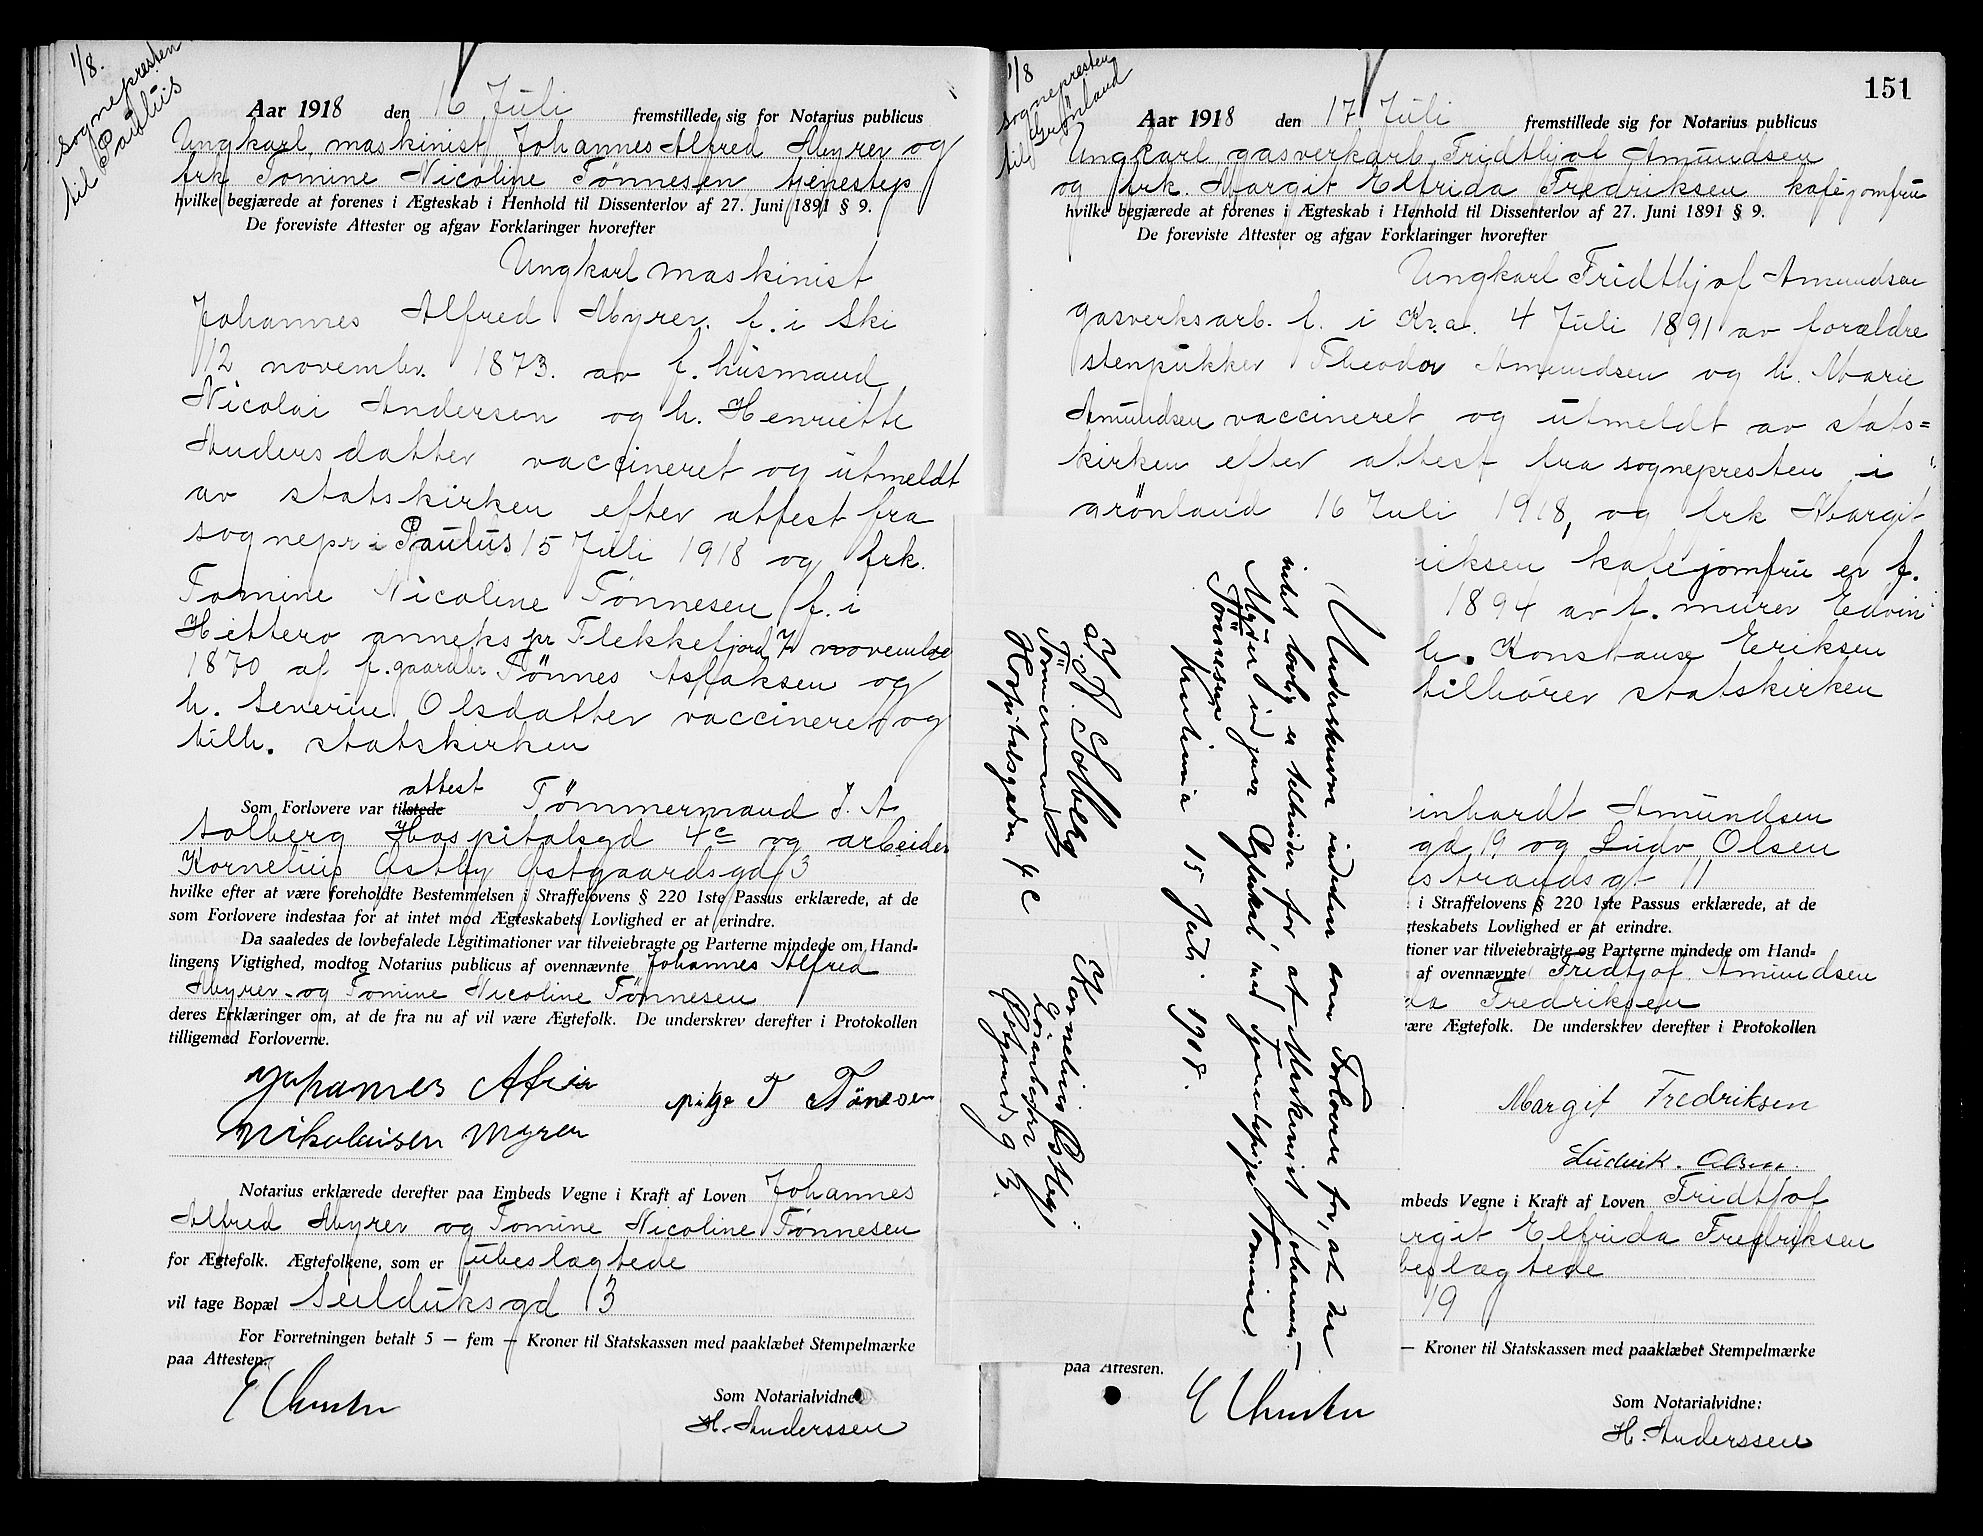 1/8.
sognepresten
til Paulus
Aar 1918 den 16 Juli fremstillede sig for Notarius publicus
Ungkarl, maskinist Johannes Alfred Myrer og
frk Tomine Nicoline Tønnesen tjenestep
hvilke begjærede at forenes i Ægteskab i Henhold til Dissenterlov af 27. Juni 1891 § 9.
De foreviste Attester og afgav Forklaringer hvorefter
Ungkarl maskinist
Johannes Alfred Myrer. f. i Ski
12 novembr. 1873. av f. husmand
Nicolai Andersen og h. Henriette
Andersdatter vaccineret og utmeldt
av statskirken efter attest fra
sognepr i Paulus 15 Juli 1918 og frk.
Tomine Nicoline Tønnesen f. i
Hitterø anneks pr Flekkefjord 7 november
1870 af f. gaardbr Tønnes Aslaksen og
h. Severine Olsdatter vaccineret og
tilh. statskirken
attest
Som Forlovere var tilstede Tømmermand J. A
Solberg Hospitalsgd 4c og arbeider
Kornelius Østby Østgaardsgd 3
hvilke efter at være foreholdte Bestemmelsen i Straffelovens § 220 1ste Passus erklærede, at de
som Forlovere indestaa for at intet mod Ægteskabets Lovlighed er at erindre.
Da saaledes de lovbefalede Legitimationer var tilveiebragte og Parterne mindede om Hand-
lingens Vigtighed, modtog Notarius publicus af ovennævnte Johannes Alfred
Myrer og Tomine Nicoline Tønnesen
deres Erklæringer om, at de fra nu af vil være Ægtefolk. De underskrev derefter i Protokollen
tilligemed Forloverne.
Johannes
Nikolaisen Myrer
pike T Tönesen
Notarius erklærede derefter paa Embeds Vegne i Kraft af Loven Johannes
Alfred Myrer og Tomine Nicoline Tønnesen
for Ægtefolk. Ægtefolkene, som er ubeslægtede
vil tage Bopæl Seilduksgd 13
For Forretningen betalt 5 — fem — Kroner til Statskassen med paaklæbet Stempelmærke
paa Attesten.
Som Notarialvidne
H. Anderssen
Undertegnede indestaar som Forlovere for, at der
intet lovlig er tilhinder for at Maskinist Johannes
Myrer indgaar Ægteskab med Tjenestepige Tomine
Tönnesen
Kristiania 15 Juli 1918.
J. A. Solberg
Tömmermand
Hospitalsgaden 4 c
Kornelius Østby
Østgaardsg 3.
151
1/8
sognepresten
til Grönland
Aar 1918 den 17 Juli fremstillede sig for Notarius publicus
Ungkarl gasverkarb. Fridthjof Amundsen
og frk. Margit Elfrida Fredriksen kafejomfru
hvilke begjærede at forenes i Ægteskab i Henhold til Dissenterlov af 27. Juni 1891 § 9.
De foreviste Attester og afgav Forklaringer hvorefter
Ungkarl Fridthjof Amundsen
gasverksarb. f. i Kr.a. 4 Juli 1891 av forældre
stenpukker Theodor Amundsen og h. Marie
Amundsen vaccineret og utmeldt av stats=
kirken efter attest fra sognepresten i
grönland 16 Juli 1918, og frk Margit
iksen kafejomfru er f.
1894 av f. murer Edvin
h. Konstanse Eriksen
tilhører statskirken
inhardt Amundsen
gd 19 og Ludv. Olsen
strandsgt 11
i Straffelovens § 220 1ste Passus erklærede, at de
gteskabets Lovlighed er at erindre.
tioner var tilveiebragte og Parterne mindede om Hand-
af ovennævnte Fridtjof Amundsen
Fredriksen
være Ægtefolk. De underskrev derefter i Protokollen
Margit Fredriksen
Ludvik. Olsen
mbeds Vegne i Kraft af Loven Fridtjof
rgit Elfrida Fredriksen
beslægtede
19
— Kroner til Statskassen med paaklæbet Stempelmærke
paa Attesten.
Som Notarialvidne:
H. Anderssen